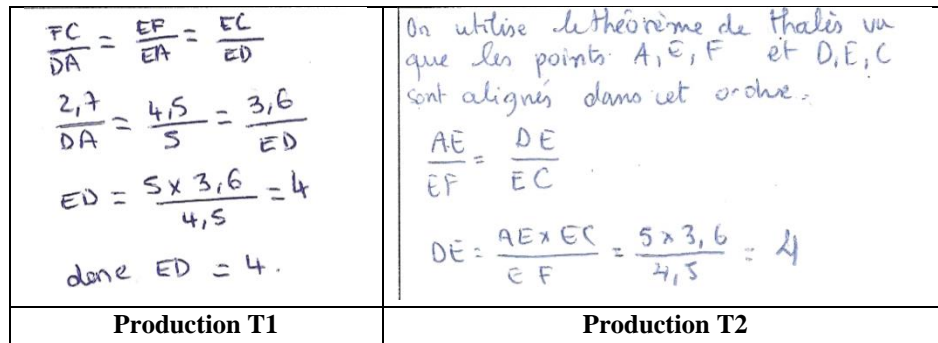 FC/DA = EF/EA = EC/ED
2,7/DA = 4,5/5 = 3,6/ED
ED = 5 x 3,6/4,5 = 4
donc ED = 4.
On utilise le théorème de thalès vu
que les points A, E, F et D, E, C
sont alignés dans cet ordre.
AE/EF = DE/EC
DE = AE x EC/EF = 5 x 3,6/4,5 = 4
Production T1
Production T2